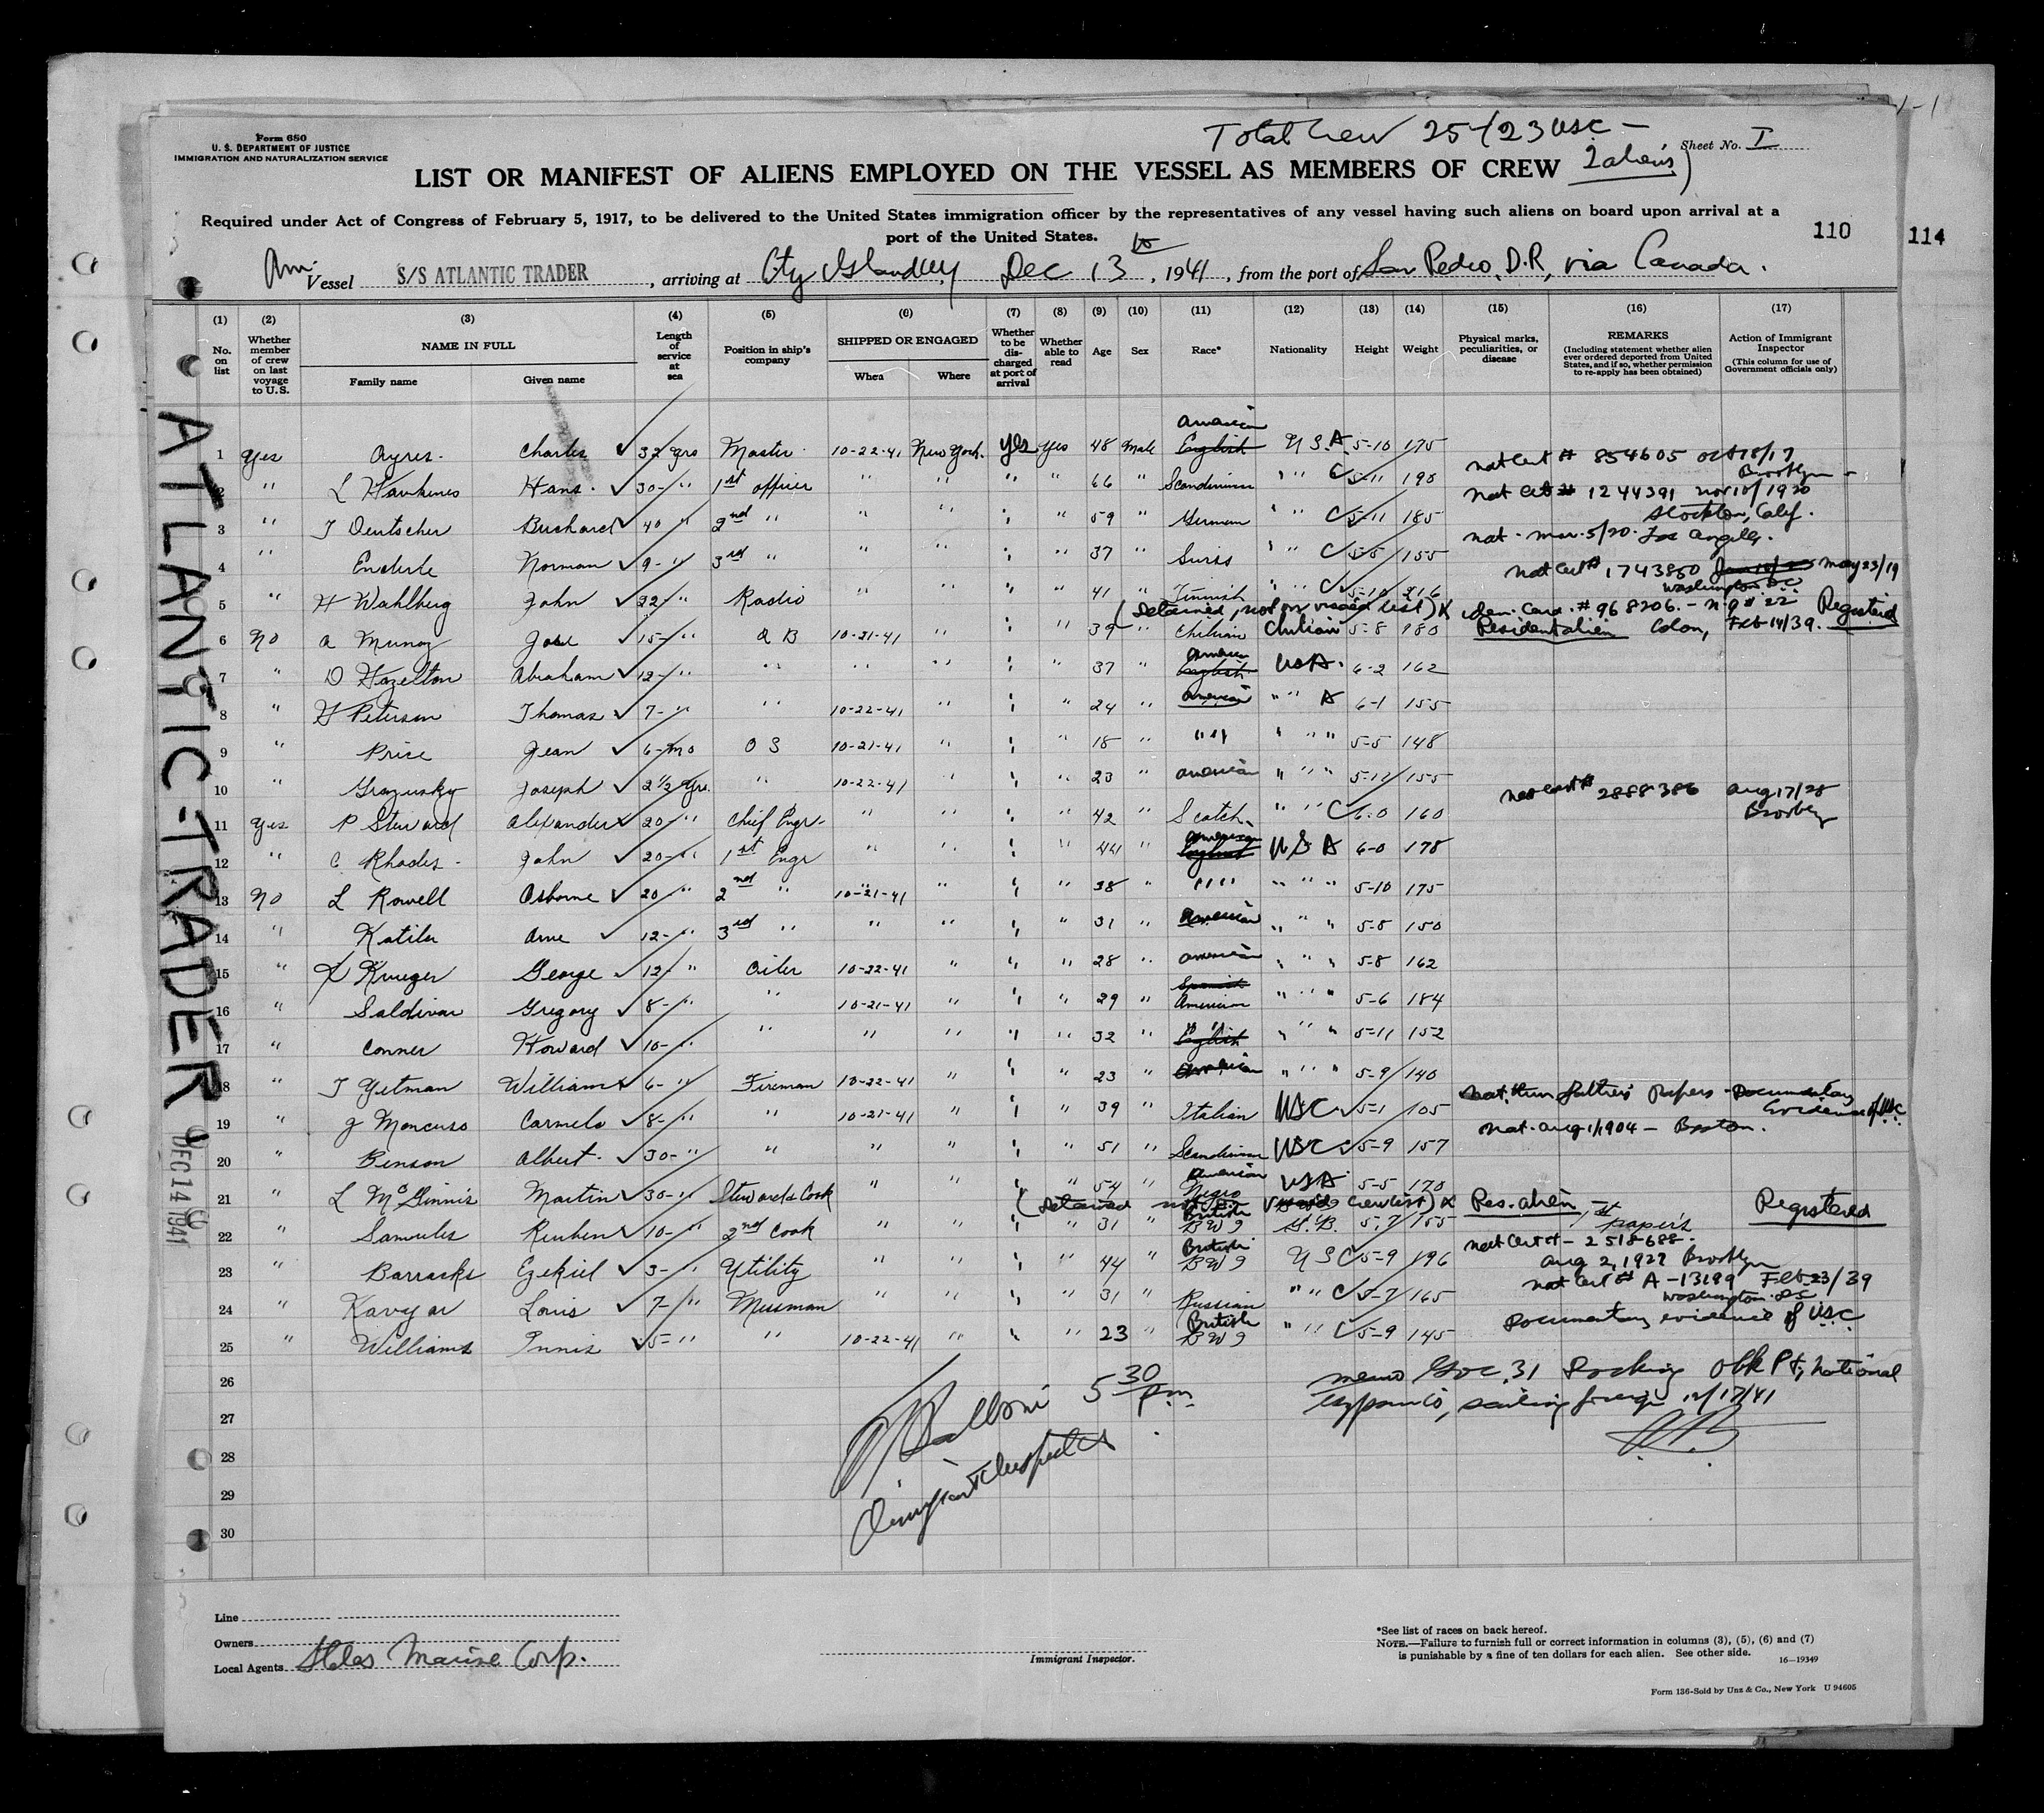 1-1
Form 650
U. S. DEPARTMENT OF JUSTICE
IMMIGRATION AND NATURALIZATION SERVICE
Total Crew 25 (23 USC -
2 aliens)
Sheet No. I
LIST OR MANIFEST OF ALIENS EMPLOYED ON THE VESSEL AS MEMBERS OF CREW
Required under Act of Congress of February 5, 1917, to be delivered to the United States immigration officer by the representatives of any vessel having such aliens on board upon arrival at a
port of the United States.
110 114
Am. Vessel S/S ATLANTIC TRADER, arriving at City Island NY Dec 13th, 1941, from the port of San Pedro, D.R, via Canada.
(1) (2) (3) (4) (5) (6) (7) (8) (9) (10) (11) (12) (13) (14) (15) (16) (17)
No. on list
Whether member of crew on last voyage to U.S.
NAME IN FULL
Family name Given name
Length of service at sea
Position in ship's company
SHIPPED OR ENGAGED
When Where
Whether to be discharged at port of arrival
Whether able to read
Age Sex Race* Nationality Height Weight
Physical marks, peculiarities, or disease
REMARKS
(Including statement whether alien ever ordered deported from United States, and if so, whether permission to re-apply has been obtained)
Action of Immigrant Inspector
(This column for use of Government officials only)
ATLANTIC-TRADER
DEC 14 1941
1 Yes Ayres Charles 32 yrs Master 10-22-41 New York yes yes 48 Male American English U S A 5-10 175
Nat Cert # 854605 Oct 18/17
Brooklyn -
2 " L Haukenes Hans 30 - " 1st officer " " " " 66 " Scandinavian " " C 5-11 190
Nat Cert # 1244391 Nov 10/1920
Stockton, Calif.
3 " J Deutscher Burchard 40 " 2nd " " " " " 59 " German " " C 5-11 185
Nat - Mar. 5/20. Los Angeles.
4 " Enderle Norman 9 - " 3rd " " " " " 37 " Swiss " " C 5-5 155
Nat Cert # 1743850 May 23/19
Washington D.C
5 " H Wahlberg John 22 " Radio " " " " 41 " Finnish " " C 5-10 216
(Detained, not on visaed list) X Iden. Card. # 968206. - Registered
6 No A Munoz Jose 15 - " A B 10-21-41 " " " 39 " Chilian Chilian 5-8 180
Resident alien Colon, Feb 14/39.
7 " D Hazelton Abraham 12 - " " " " " " " 37 " American English USA. 6-2 162
8 " H Peterson Thomas 7 - " " " 10-22-41 " " " 24 " American " " A 6-1 155
9 " Price Jean 6 - mo O S 10-21-41 " " " 18 " " " " " " 5-5 148
10 " Joseph 2 1/2 yrs. " 10-22-41 " " " 23 " American " " " 155
Nat Cert # 2888386 Aug 17/28
11 Yes P Steward Alexander 20 - " Chief Engr. " " " " 42 " Scotch " " C 6-0 160
12 " C Rhodes John 20 - " 1st Engr " " " " 44 " American English U S A 6-0 178
13 No L Rowell Osborne 20 " 2nd " 10-21-41 " " " 38 " " " " " " 5-10 175
14 " Katila Arne 12 - " 3rd " " " " " 31 " American " " " 5-8 150
15 " Krueger George 12 - " Oiler 10-22-41 " " " 28 " American " " " 5-8 162
16 " Saldivar Gregory 8 - " " 10-21-41 " " " 29 " Spanish American " " " 5-6 184
17 " Conner Howard 10 - " " " " " " 32 " " " English " " " 5-11 152
18 " J Yetman William 6 - " Fireman 10-22-41 " " " 23 " American " " " 5-9 140
Nat. thru father's papers - Documentary
Evidence of USC
19 " J Mancuso Carmelo 8 - " " 10-21-41 " " " 39 " Italian USC 5-1 105
Nat. Aug 1/1904 - Boston.
20 " Benson Albert 30 - " " " " " " 51 " Scandinavian USC 5-9 157
21 " L McGinnis Martin 30 - " Steward & Cook " " " " 54 " American Negro USA 5-5 170
(Detained not on visaed crewlist) X Res. alien, 1st papers Registered
22 " Samules Reuben 10 - " 2nd Cook " " " 31 " British B W I G. B. 5-7 155
Nat Cert # - 2518688.
Aug 2, 1927 Brooklyn
23 " Barracks Ezekiel 3 - " Utility " " " 44 " British B W I U S C 5-9 196
Nat Cert # A - 13199 Feb 23/39
Washington DC
24 " Louis 7 - " Messman " " " 31 " Russian " " C 5-7 165
Documentary evidence of USC
25 " Williams Innis 5 - " " 10-22-41 " " " 23 " British B W I " " C 5-9 145
26
27
28
29
30
5 30 pm
Immigrant Inspector
memo
sailing foreign 12/17/41
Line
Owners
Local Agents Marine Corp.
Immigrant Inspector.
*See list of races on back hereof.
NOTE.—Failure to furnish full or correct information in columns (3), (5), (6) and (7)
is punishable by a fine of ten dollars for each alien. See other side.
16—19349
Form 136-Sold by Unz & Co., New York U 94605